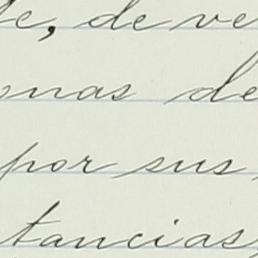 e, de ve
onas de
por sus
tancias,